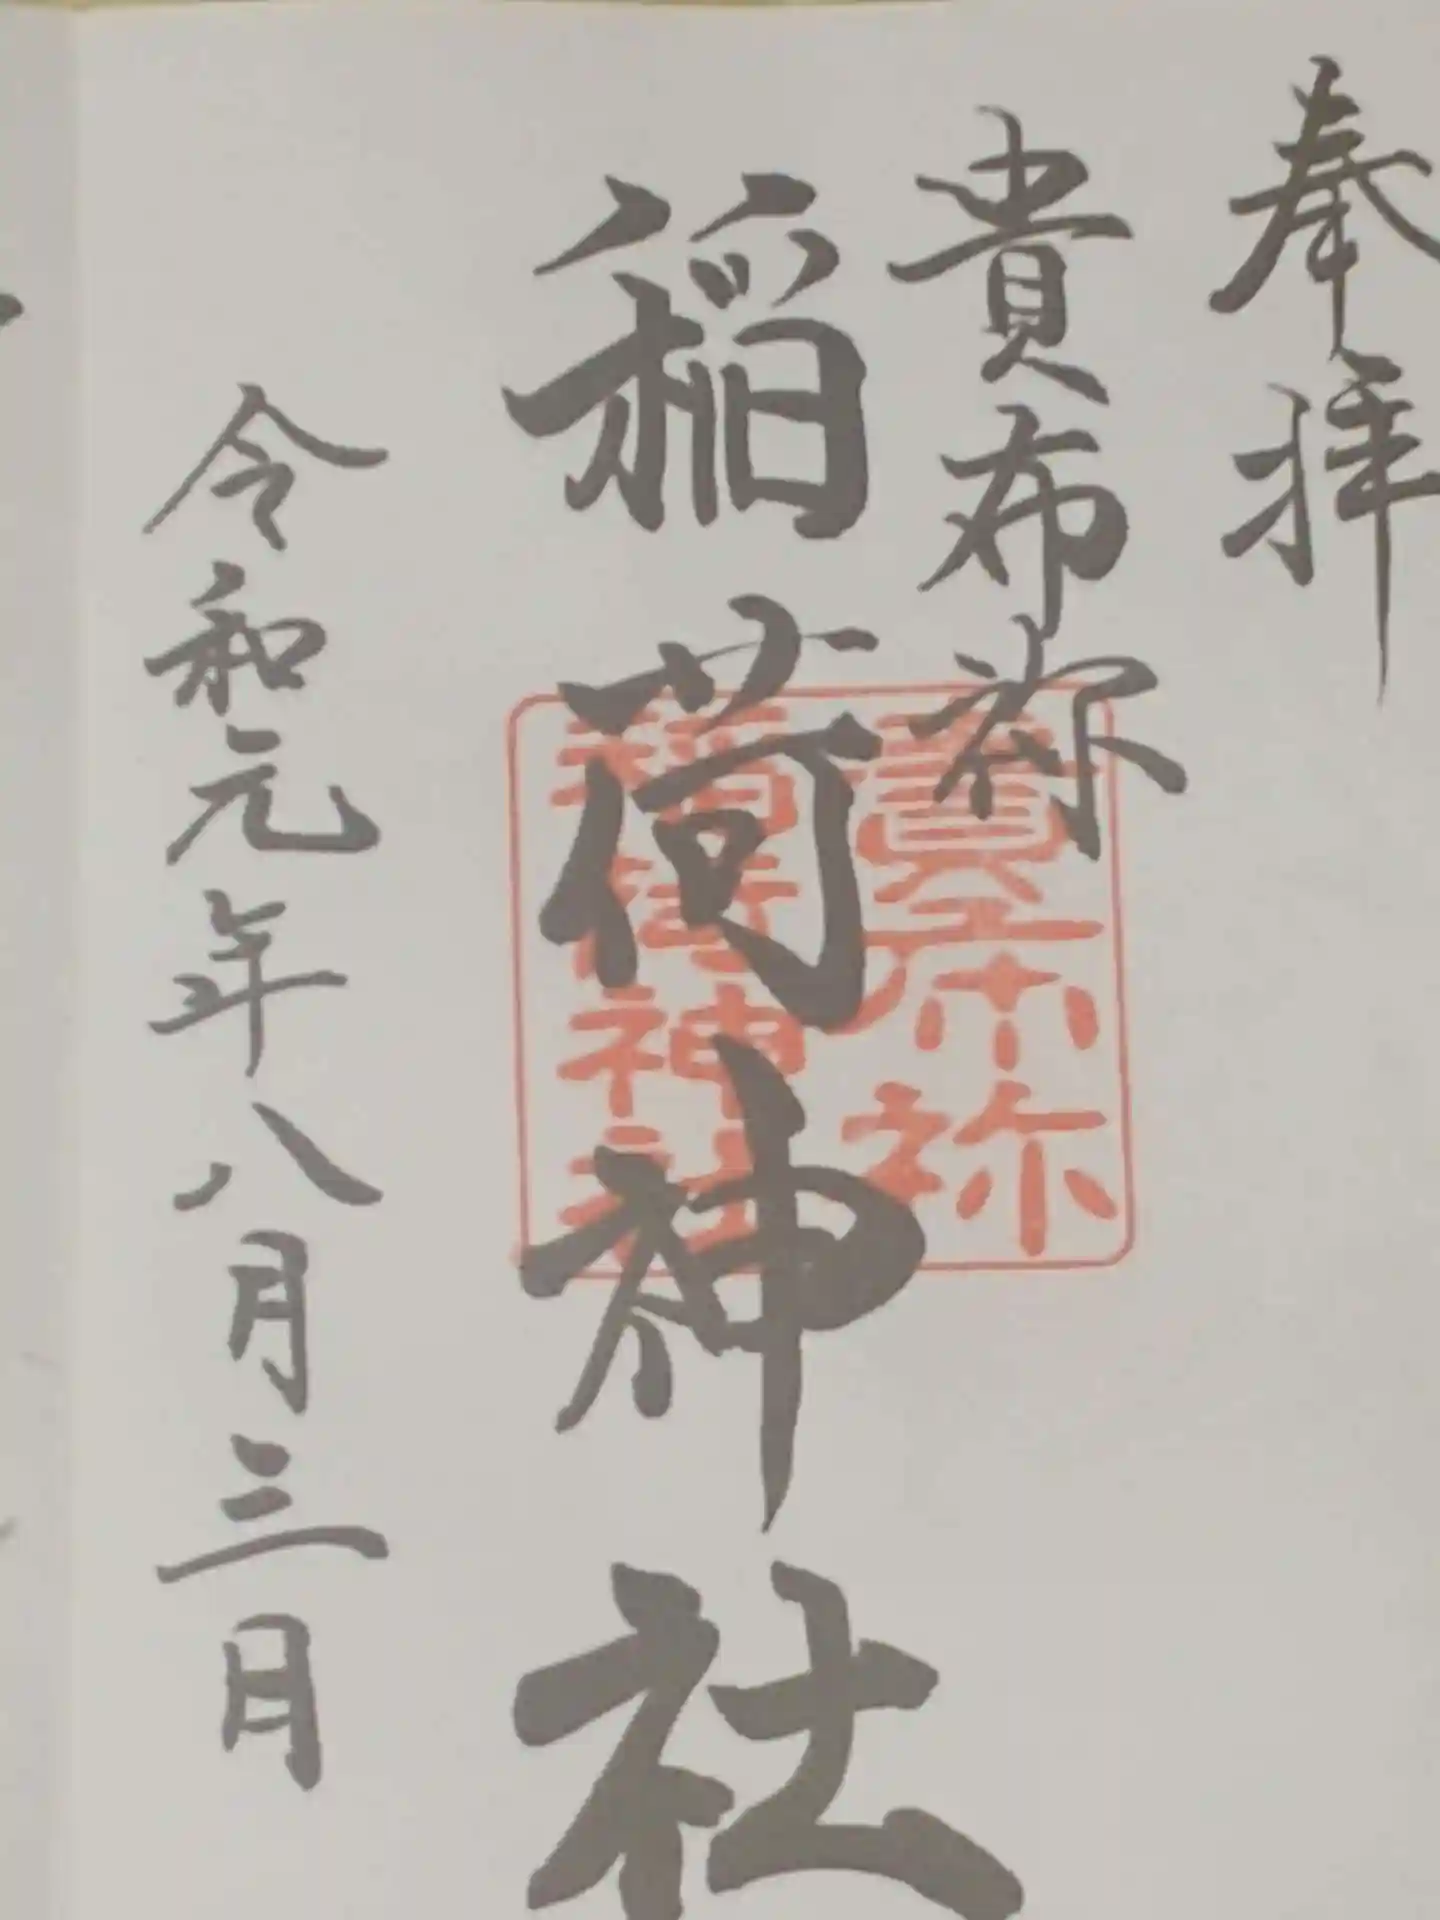 奉拝
貴布祢
稲荷神社
貴布祢
稲荷神社
令和元年八月三日